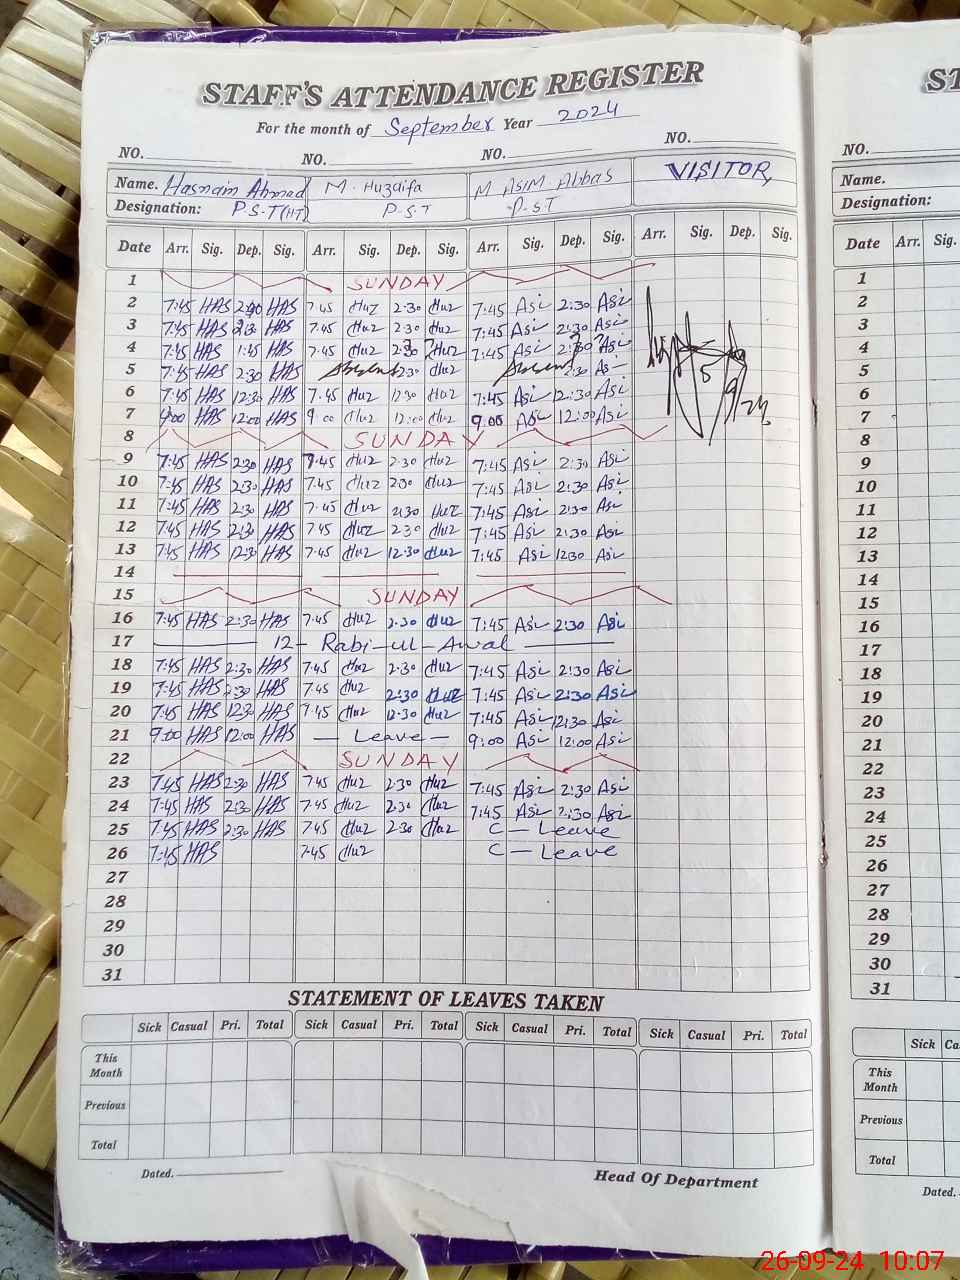 STAFF'S ATTENDANCE REGISTER
For the month of September Year 2024
NO. NO. NO. NO.
Name. Hasnain Ahmad M. Huzaifa M Asim Abbas VISITOR
Designation: P.S.T(HT) P.S.T P.S.T
Date Arr. Sig. Dep. Sig. Arr. Sig. Dep. Sig. Arr. Sig. Dep. Sig. Arr. Sig. Dep. Sig.
1 SUNDAY
2 7:45 HAS 2:30 HAS 7:45 Huz 2:30 Huz 7:45 Asi 2:30 Asi
3 7:45 HAS 2:30 HAS 7:45 Huz 2:30 Huz 7:45 Asi 2:30 Asi
4 7:45 HAS 1:45 HAS 7:45 Huz 2:30 Huz 7:45 Asi 2:30 Asi
5 7:45 HAS 2:30 HAS Absent 2:30 Huz Absent 2:30 Asi
6 7:45 HAS 12:30 HAS 7:45 Huz 12:30 Huz 7:45 Asi 12:30 Asi
7 9:00 HAS 12:00 HAS 9:00 Huz 12:00 Huz 9:00 Asi 12:00 Asi
8 SUNDAY
9 7:45 HAS 2:30 HAS 7:45 Huz 2:30 Huz 7:45 Asi 2:30 Asi
10 7:45 HAS 2:30 HAS 7:45 Huz 2:30 Huz 7:45 Asi 2:30 Asi
11 7:45 HAS 2:30 HAS 7:45 Huz 2:30 Huz 7:45 Asi 2:30 Asi
12 7:45 HAS 2:30 HAS 7:45 Huz 2:30 Huz 7:45 Asi 2:30 Asi
13 7:45 HAS 12:30 HAS 7:45 Huz 12:30 Huz 7:45 Asi 12:30 Asi
14
15 SUNDAY
16 7:45 HAS 2:30 HAS 7:45 Huz 2:30 Huz 7:45 Asi 2:30 Asi
17 12 - Rabi-ul-Awal
18 7:45 HAS 2:30 HAS 7:45 Huz 2:30 Huz 7:45 Asi 2:30 Asi
19 7:45 HAS 2:30 HAS 7:45 Huz 2:30 Huz 7:45 Asi 2:30 Asi
20 7:45 HAS 12:30 HAS 7:45 Huz 12:30 Huz 7:45 Asi 12:30 Asi
21 9:00 HAS 12:00 HAS — Leave — 9:00 Asi 12:00 Asi
22 SUNDAY
23 7:45 HAS 2:30 HAS 7:45 Huz 2:30 Huz 7:45 Asi 2:30 Asi
24 7:45 HAS 2:30 HAS 7:45 Huz 2:30 Huz 7:45 Asi 2:30 Asi
25 7:45 HAS 2:30 HAS 7:45 Huz 2:30 Huz C - Leave
26 7:45 HAS 7:45 Huz C - Leave
27
28
29
30
31
STATEMENT OF LEAVES TAKEN
Sick Casual Pri. Total Sick Casual Pri. Total Sick Casual Pri. Total Sick Casual Pri. Total
This Month
Previous
Total
Dated. Head Of Department
ST
NO.
Name.
Designation:
Date Arr. Sig.
1
2
3
4
5
6
7
8
9
10
11
12
13
14
15
16
17
18
19
20
21
22
23
24
25
26
27
28
29
30
31
Sick Ca
This Month
Previous
Total
Dated.
26-09-24 10:07